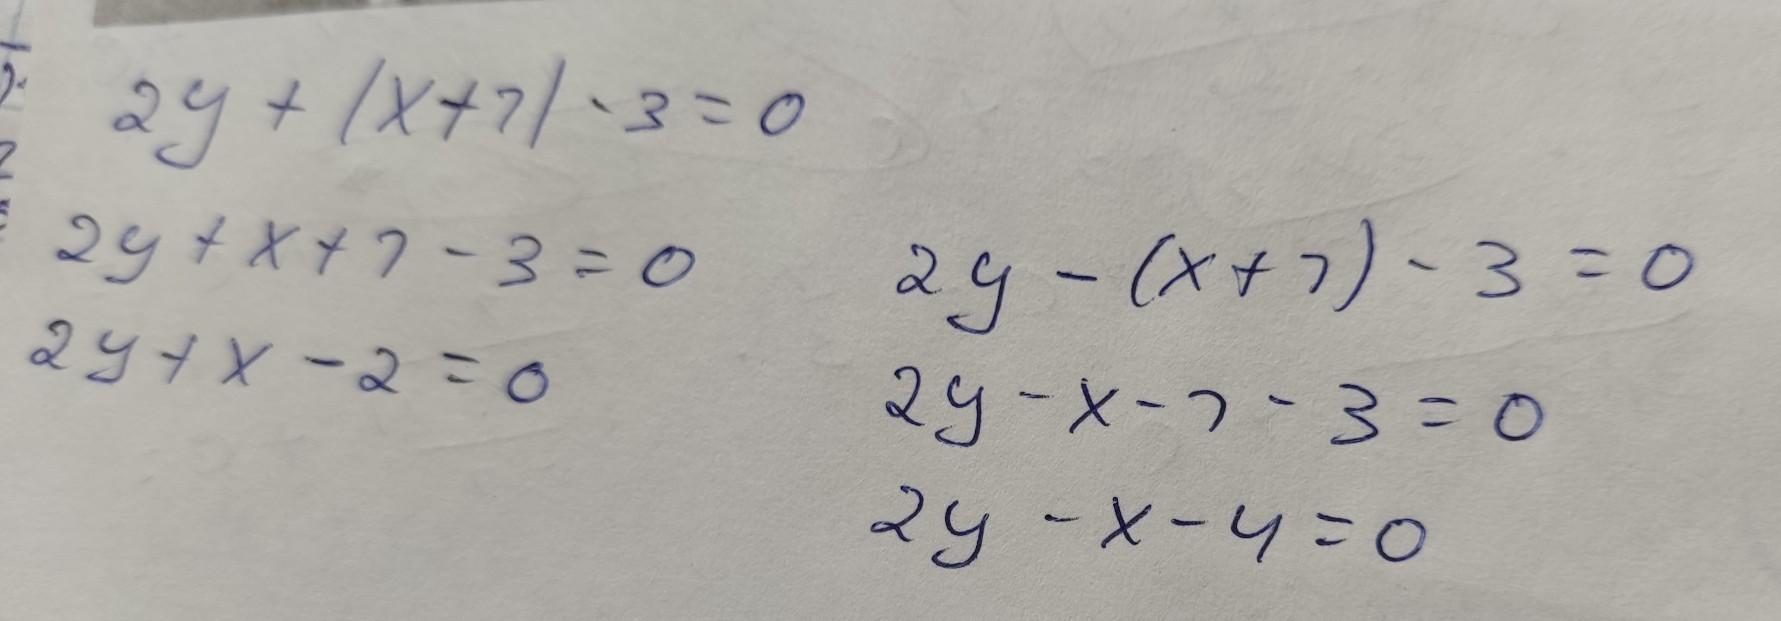 2y + |x+1| - 3 = 0
2y + x + 1 - 3 = 0
2y + x - 2 = 0
2y - (x+1) - 3 = 0
2y - x - 1 - 3 = 0
2y - x - 4 = 0